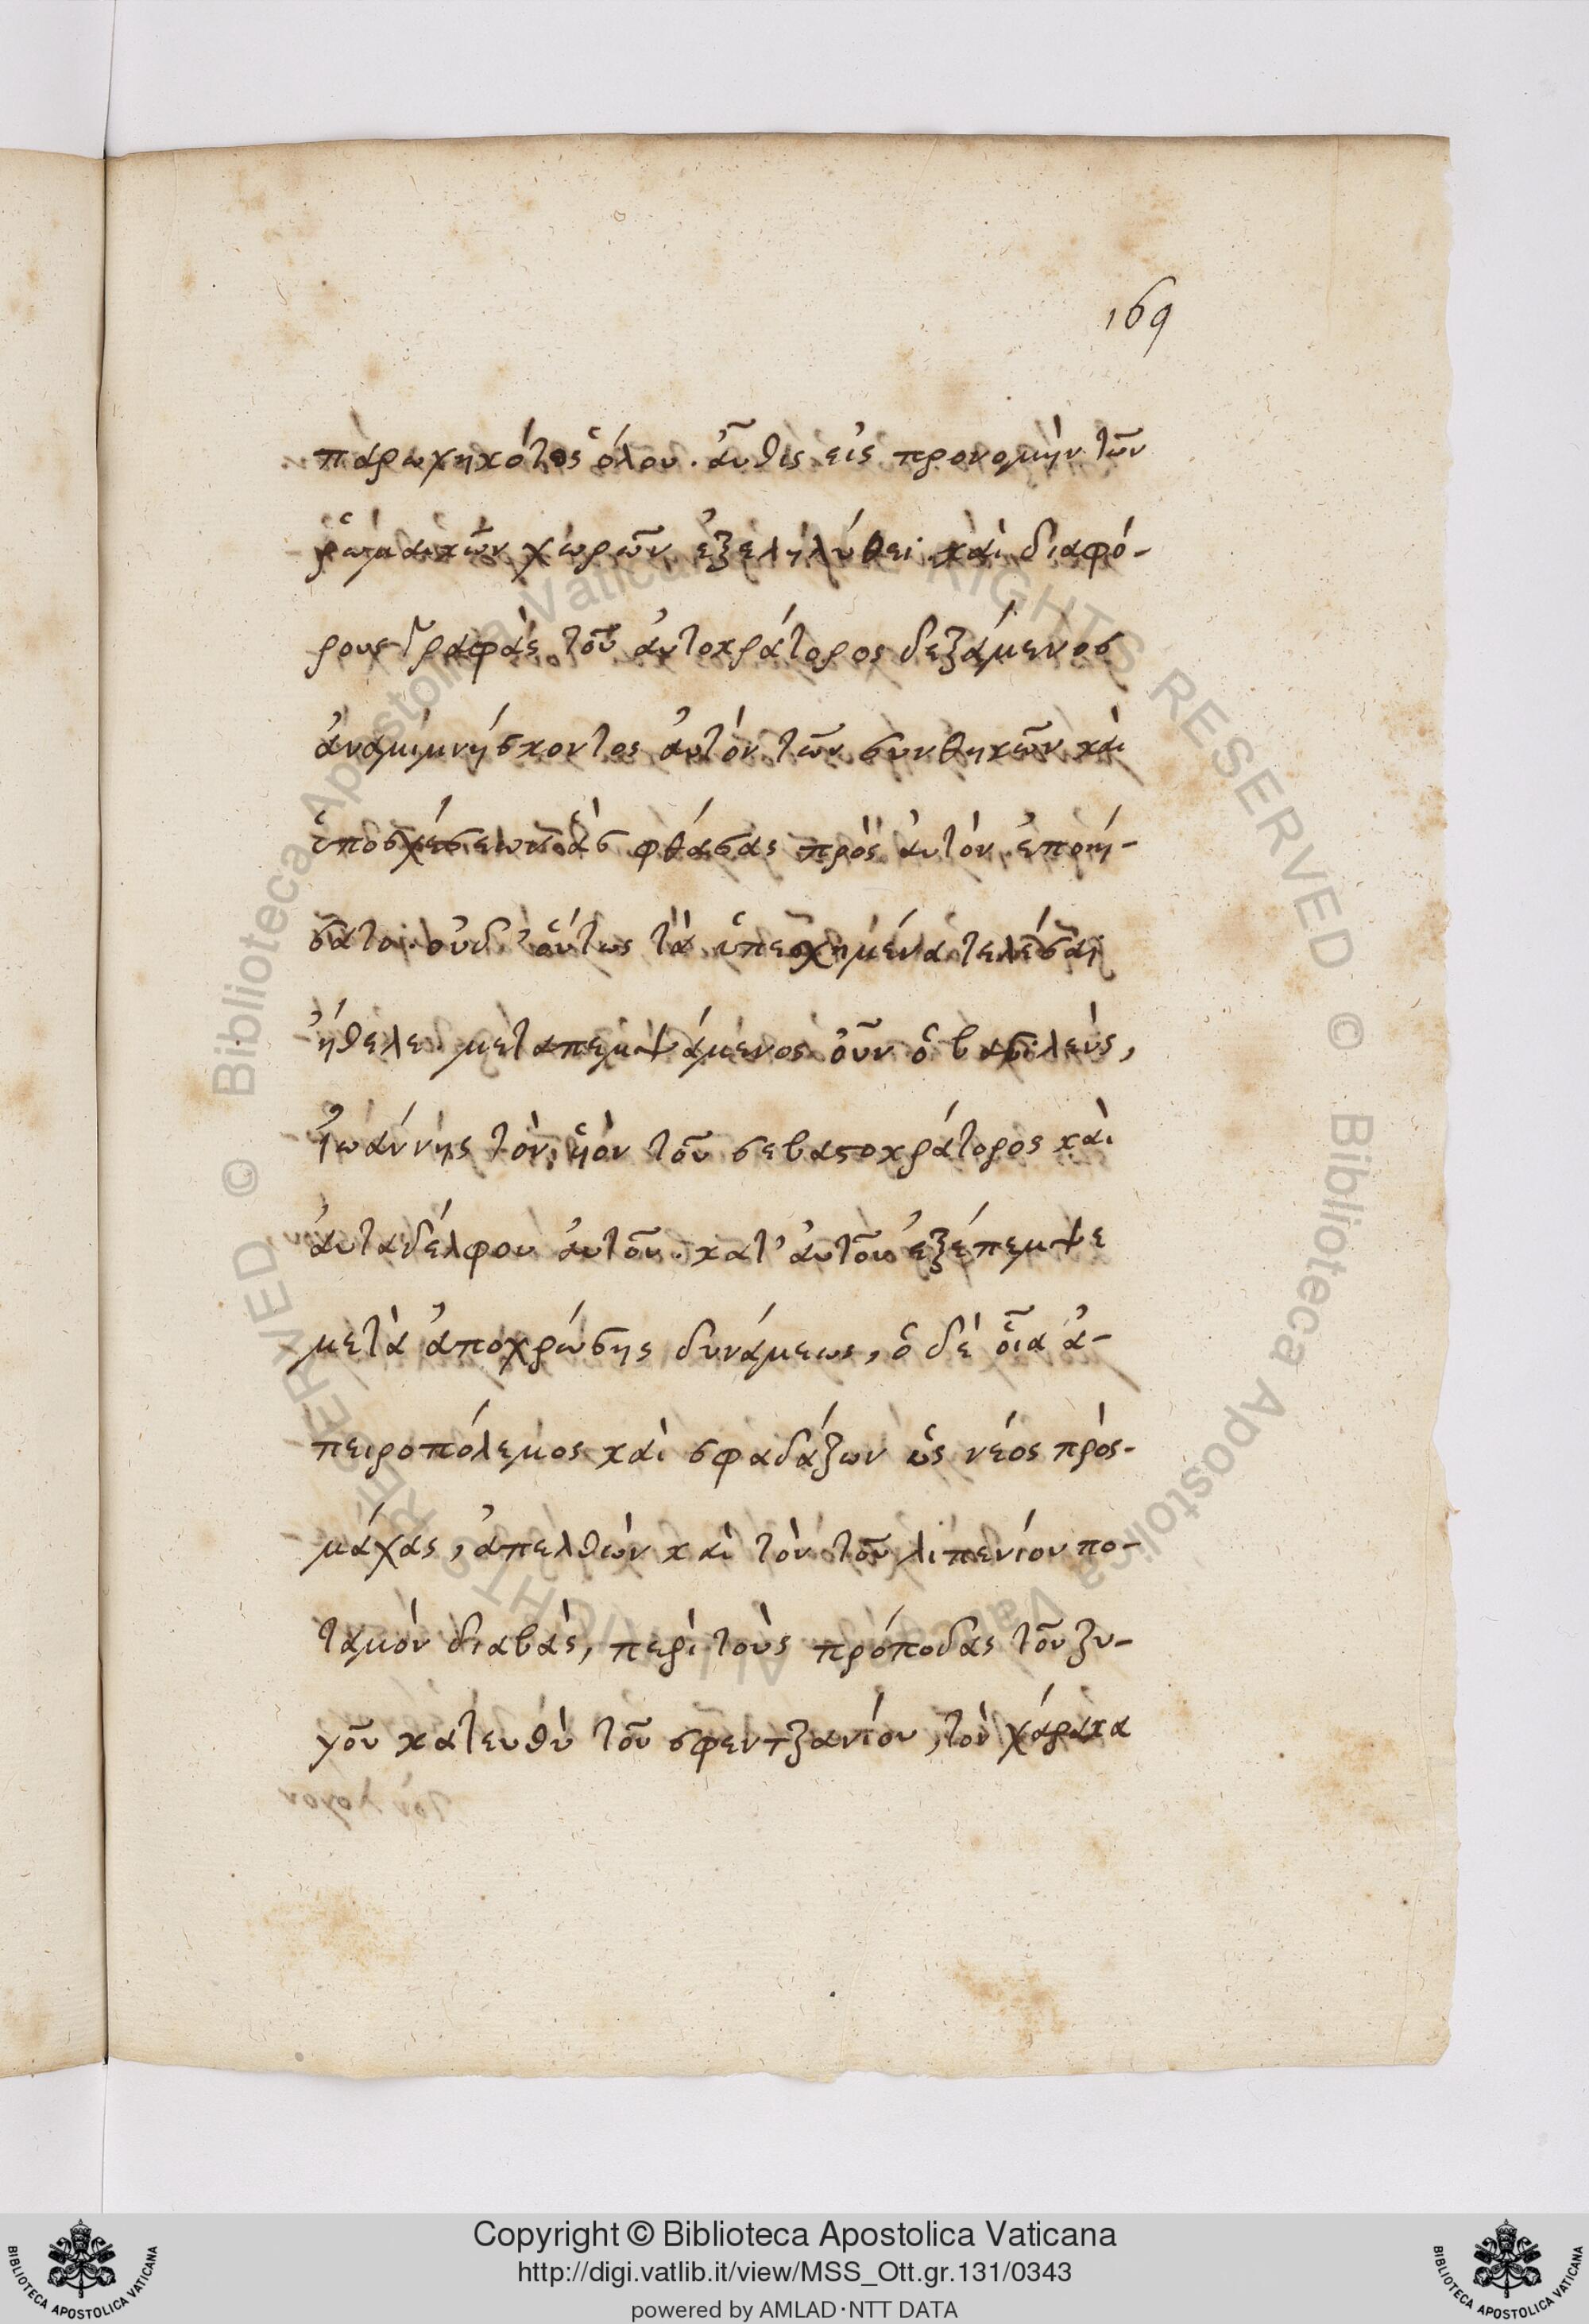 169
παρωχηκότος ὅλου. ἆυθις εἰς προνομὴν τῶν
ῥωμαϊκῶν χωρῶν ἐξεληλύθει. καὶ διαφό-
ρους γραφὰς τοῦ ἀυτοκράτορος δεξάμενος
ἀναμιμνήσκοντος ἀυτὸν τῶν συνθηκῶν καὶ
ὑποσχέσεων ἃς φθάσας πρὸς ἀυτὸν ἐποιή-
σατο. οὐδ' οὕτως τὰ ὑπεσχημένα τελέσαι
ἤθελε. μεταπεμψάμενος οὖν ὁ βασιλεὺς,
Ἰωάννης τὸν ὑὸν τοῦ σεβαστοκράτορος καὶ
ἀυταδέλφου ἀυτοῦ. κατ' ἀυτοῦ ἐξέπεμψε
μετὰ ἀποχρώσης δυνάμεως, ὁ δὲ οἷα ἀ-
πειροπόλεμος καὶ σφαδάζων ὡς νέος πρὸς-
μάχας, ἀπελθὼν καὶ τὸν τοῦ λιπενίου πο-
ταμὸν διαβὰς, περὶ τοὺς πρόποδας τοῦ ζυ-
γοῦ κατευθὺ τοῦ σφεντζανίου, τὸν χάρακα
Copyright © Biblioteca Apostolica Vaticana
http://digi.vatlib.it/view/MSS_Ott.gr.131/0343
powered by AMLAD·NTT DATA
BIBLIOTECA APOSTOLICA VATICANA
BIBLIOTECA APOSTOLICA VATICANA